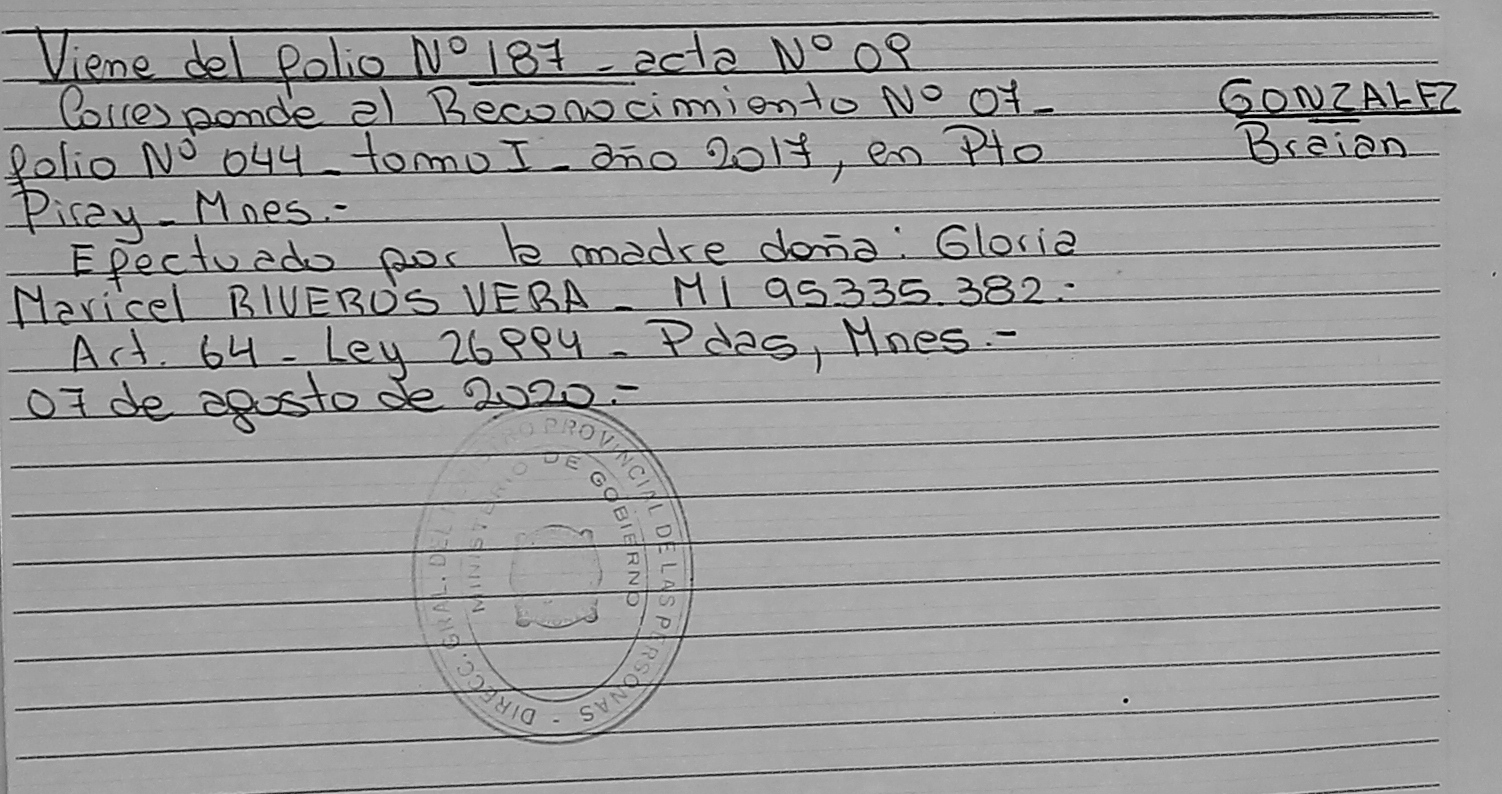 Viene del folio Nº 187 - acta Nº 09
Corresponde al Reconocimiento Nº 07-
folio Nº 044 - tomo I - año 2017, en Pto
Piray - Mnes.-
Efectuado por la madre doña: Gloria
Maricel RIVEROS VERA - MI 95.335.382.-
Art. 64 - Ley 26994 - Pdas, Mnes.-
07 de agosto de 2020.-
GONZALEZ
Braian
DIRECC. GRAL. DEL PROVINCIAL DE LAS PERSONAS -
MINISTERIO DE GOBIERNO